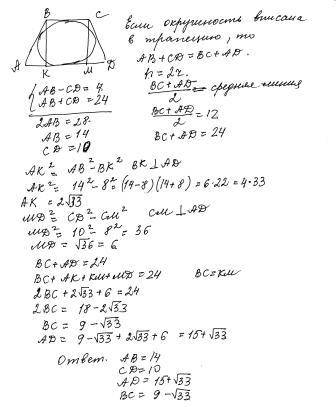 B C
A K M D
Если окружность вписана
в трапецию, то
AB + CD = BC + AD.
h = 2r.
BC + AD / 2 = средняя линия
BC + AD / 2 = 12
BC + AD = 24
{ AB - CD = 4
AB + CD = 24
2AB = 28
AB = 14
CD = 10
AK² = AB² - BK² BK ⊥ AD
AK² = 14² - 8² = (14-8)(14+8) = 6·22 = 4·33
AK = 2√33
MD² = CD² - CM² CM ⊥ AD
MD² = 10² - 8² = 36
MD = √36 = 6
BC + AD = 24
BC + AK + KM + MD = 24 BC = KM
2BC + 2√33 + 6 = 24
2BC = 18 - 2√33
BC = 9 - √33
AD = 9 - √33 + 2√33 + 6 = 15 + √33
Ответ. AB = 14
CD = 10
AD = 15 + √33
BC = 9 - √33